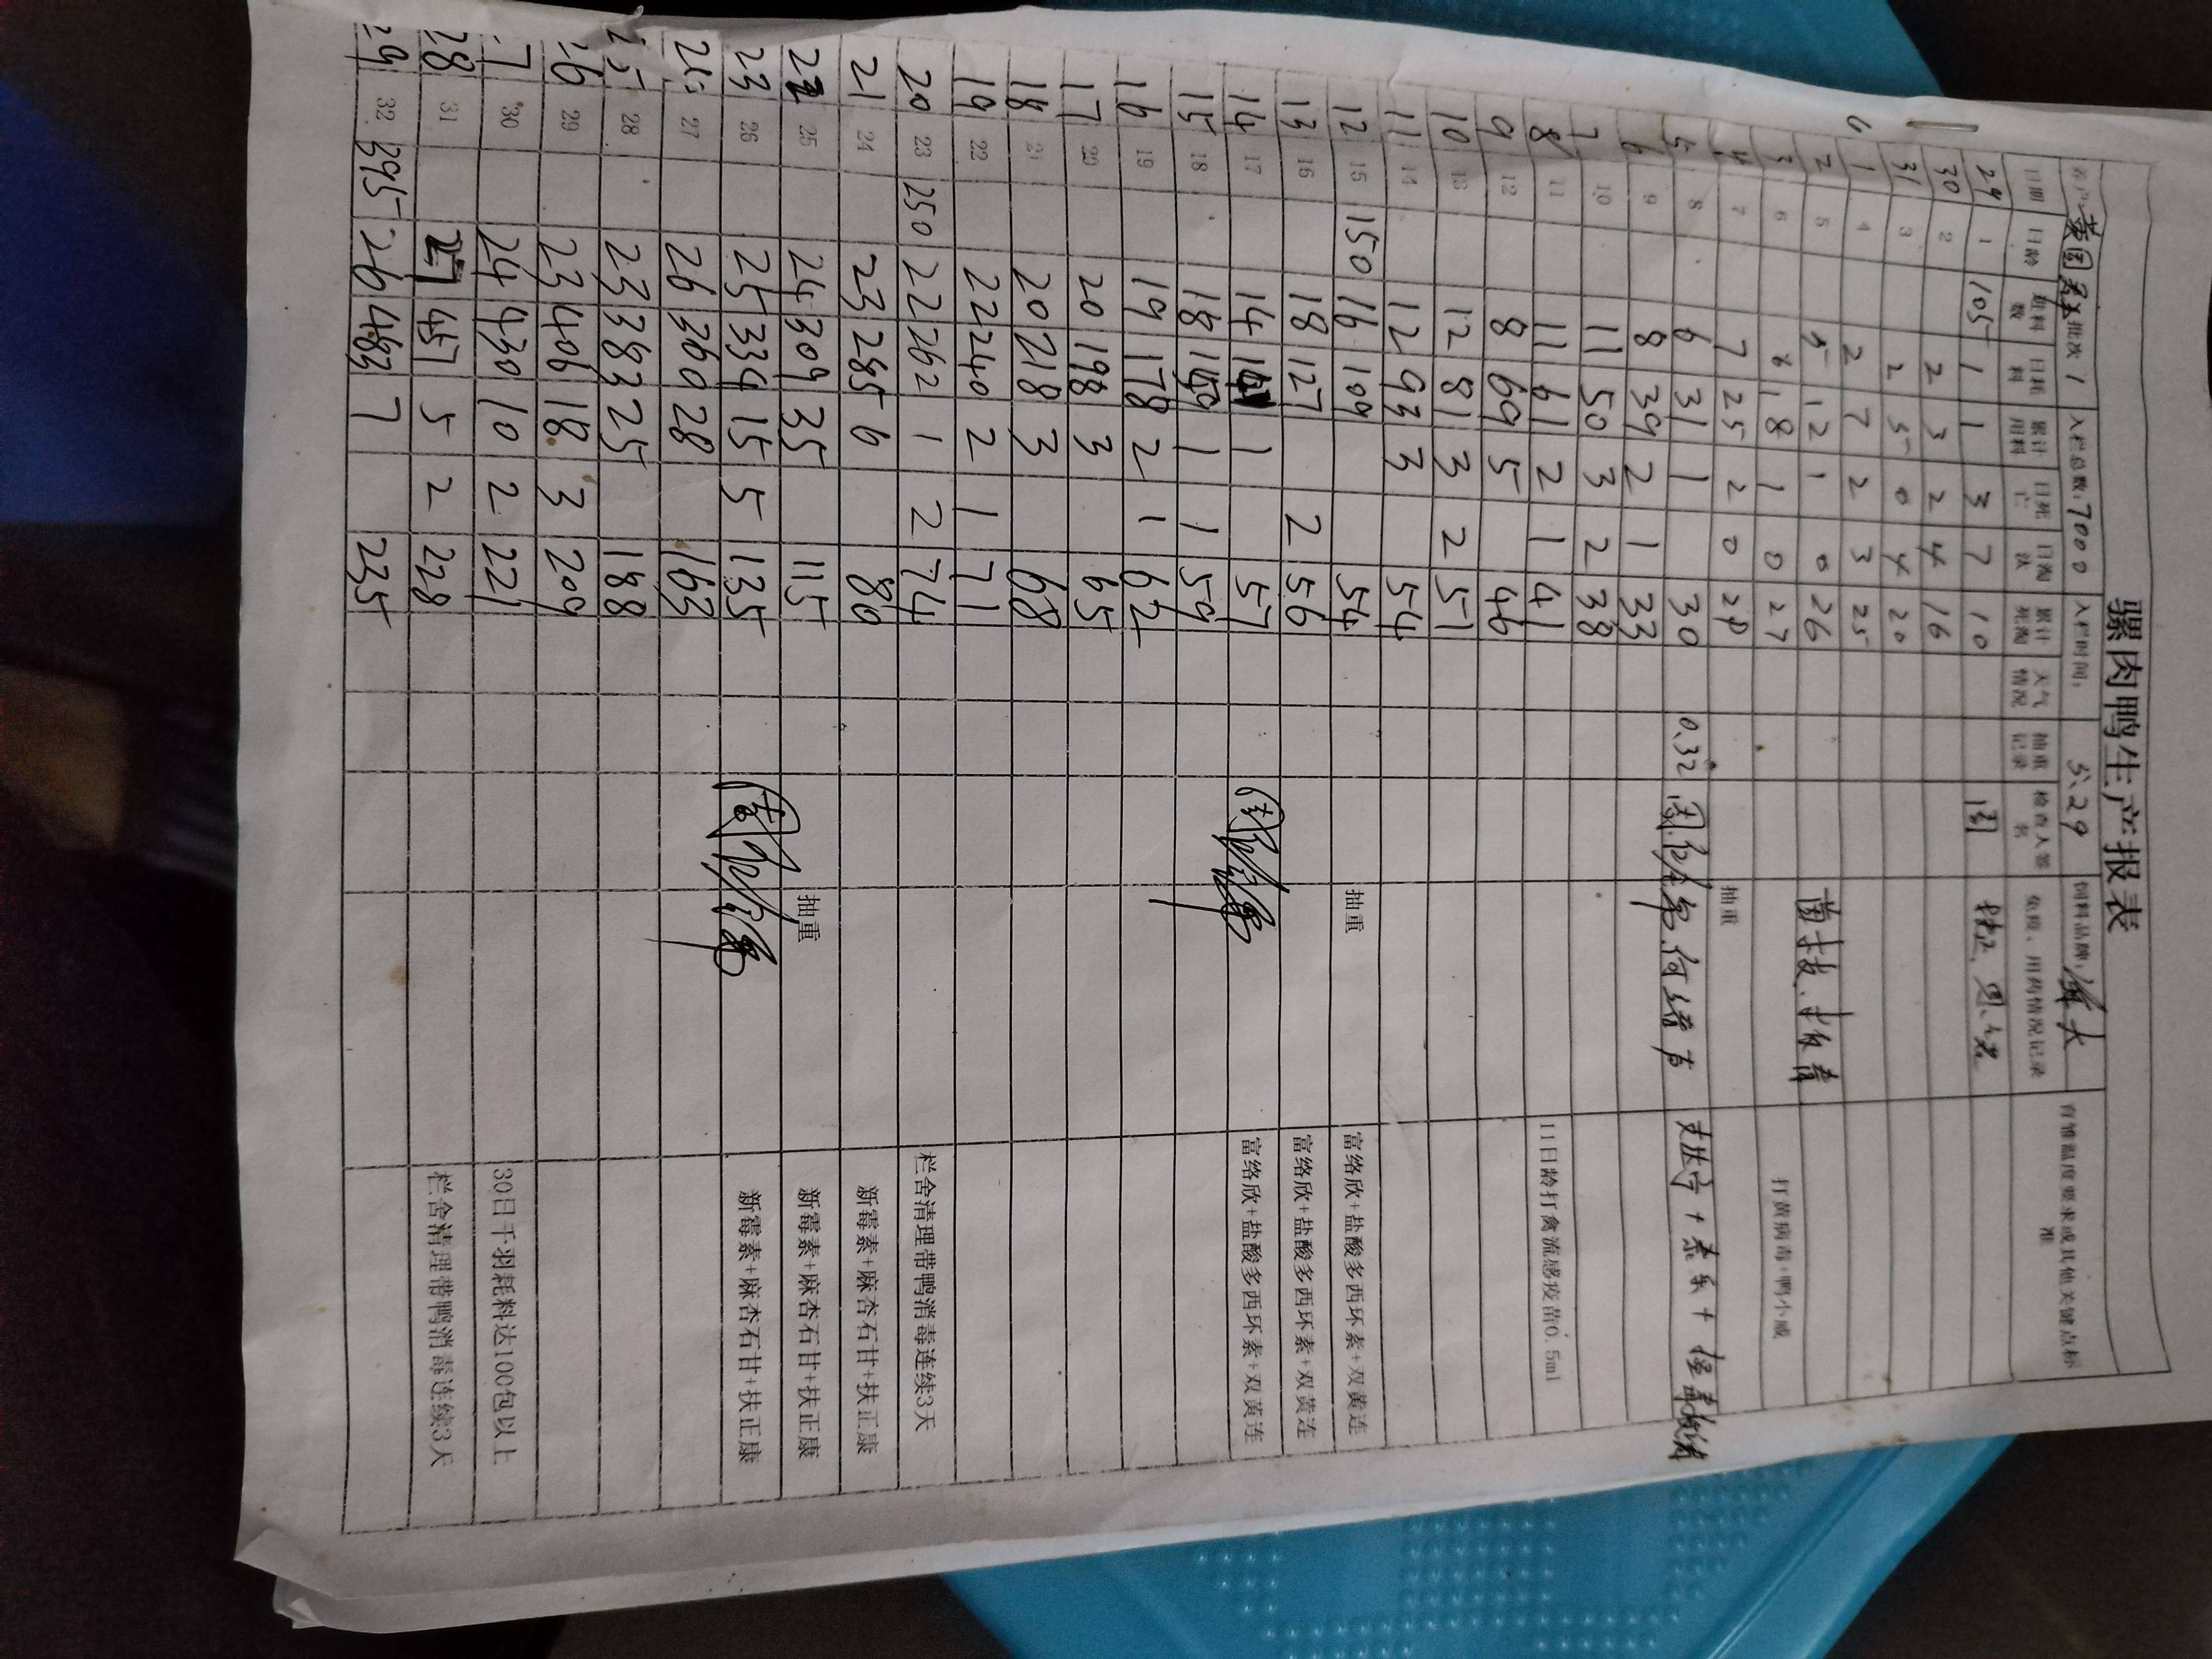 骡肉鸭生产报表
客户: 批次 1 入栏总数: 7000 入栏时间: 5.29 饲料品牌: 海大
日期 日龄 进料数 日耗料 累计用料 日死亡 日淘汰 累计死淘 天气情况 抽重记录 检查人签名 免疫、用药情况记录 育雏温度要求或其他关键点标准
29 1 105 1 1 3 7 10
30 2 2 3 2 4 16
31 3 2 5 0 4 20
6 1 4 2 7 2 3 25
2 5 5 12 1 0 26
3 6 6 18 1 0 27 打黄病毒+鸭小威
4 7 7 25 2 0 29 抽重
5 8 6 31 1 30 0.32
6 9 8 39 2 1 33
7 10 11 50 3 2 38
8 11 11 61 2 1 41 11日龄打禽流感疫苗0.5ml
9 12 8 69 5 46
10 13 12 81 3 2 51
11 14 12 93 3 54
12 15 150 16 109 54 抽重 富络欣+盐酸多西环素+双黄连
13 16 18 127 2 56 富络欣+盐酸多西环素+双黄连
14 17 14 141 1 57 富络欣+盐酸多西环素+双黄连
15 18 18 159 1 1 59
16 19 19 178 2 1 62
17 20 20 198 3 65
18 21 20 218 3 68
19 22 22 240 2 1 71
20 23 250 22 262 1 2 74 栏舍清理带鸭消毒连续3天
21 24 23 285 6 80 新霉素+麻杏石甘+扶正康
22 25 24 309 35 115 抽重 新霉素+麻杏石甘+扶正康
23 26 25 334 15 5 135 新霉素+麻杏石甘+扶正康
27 26 360 28 163
25 28 23 383 25 188
26 29 23 406 18 3 209
27 30 24 430 10 2 221 30日千羽耗料达100包以上
28 31 27 457 5 2 228 栏舍清理带鸭消毒连续3天
29 32 295 26 483 7 235